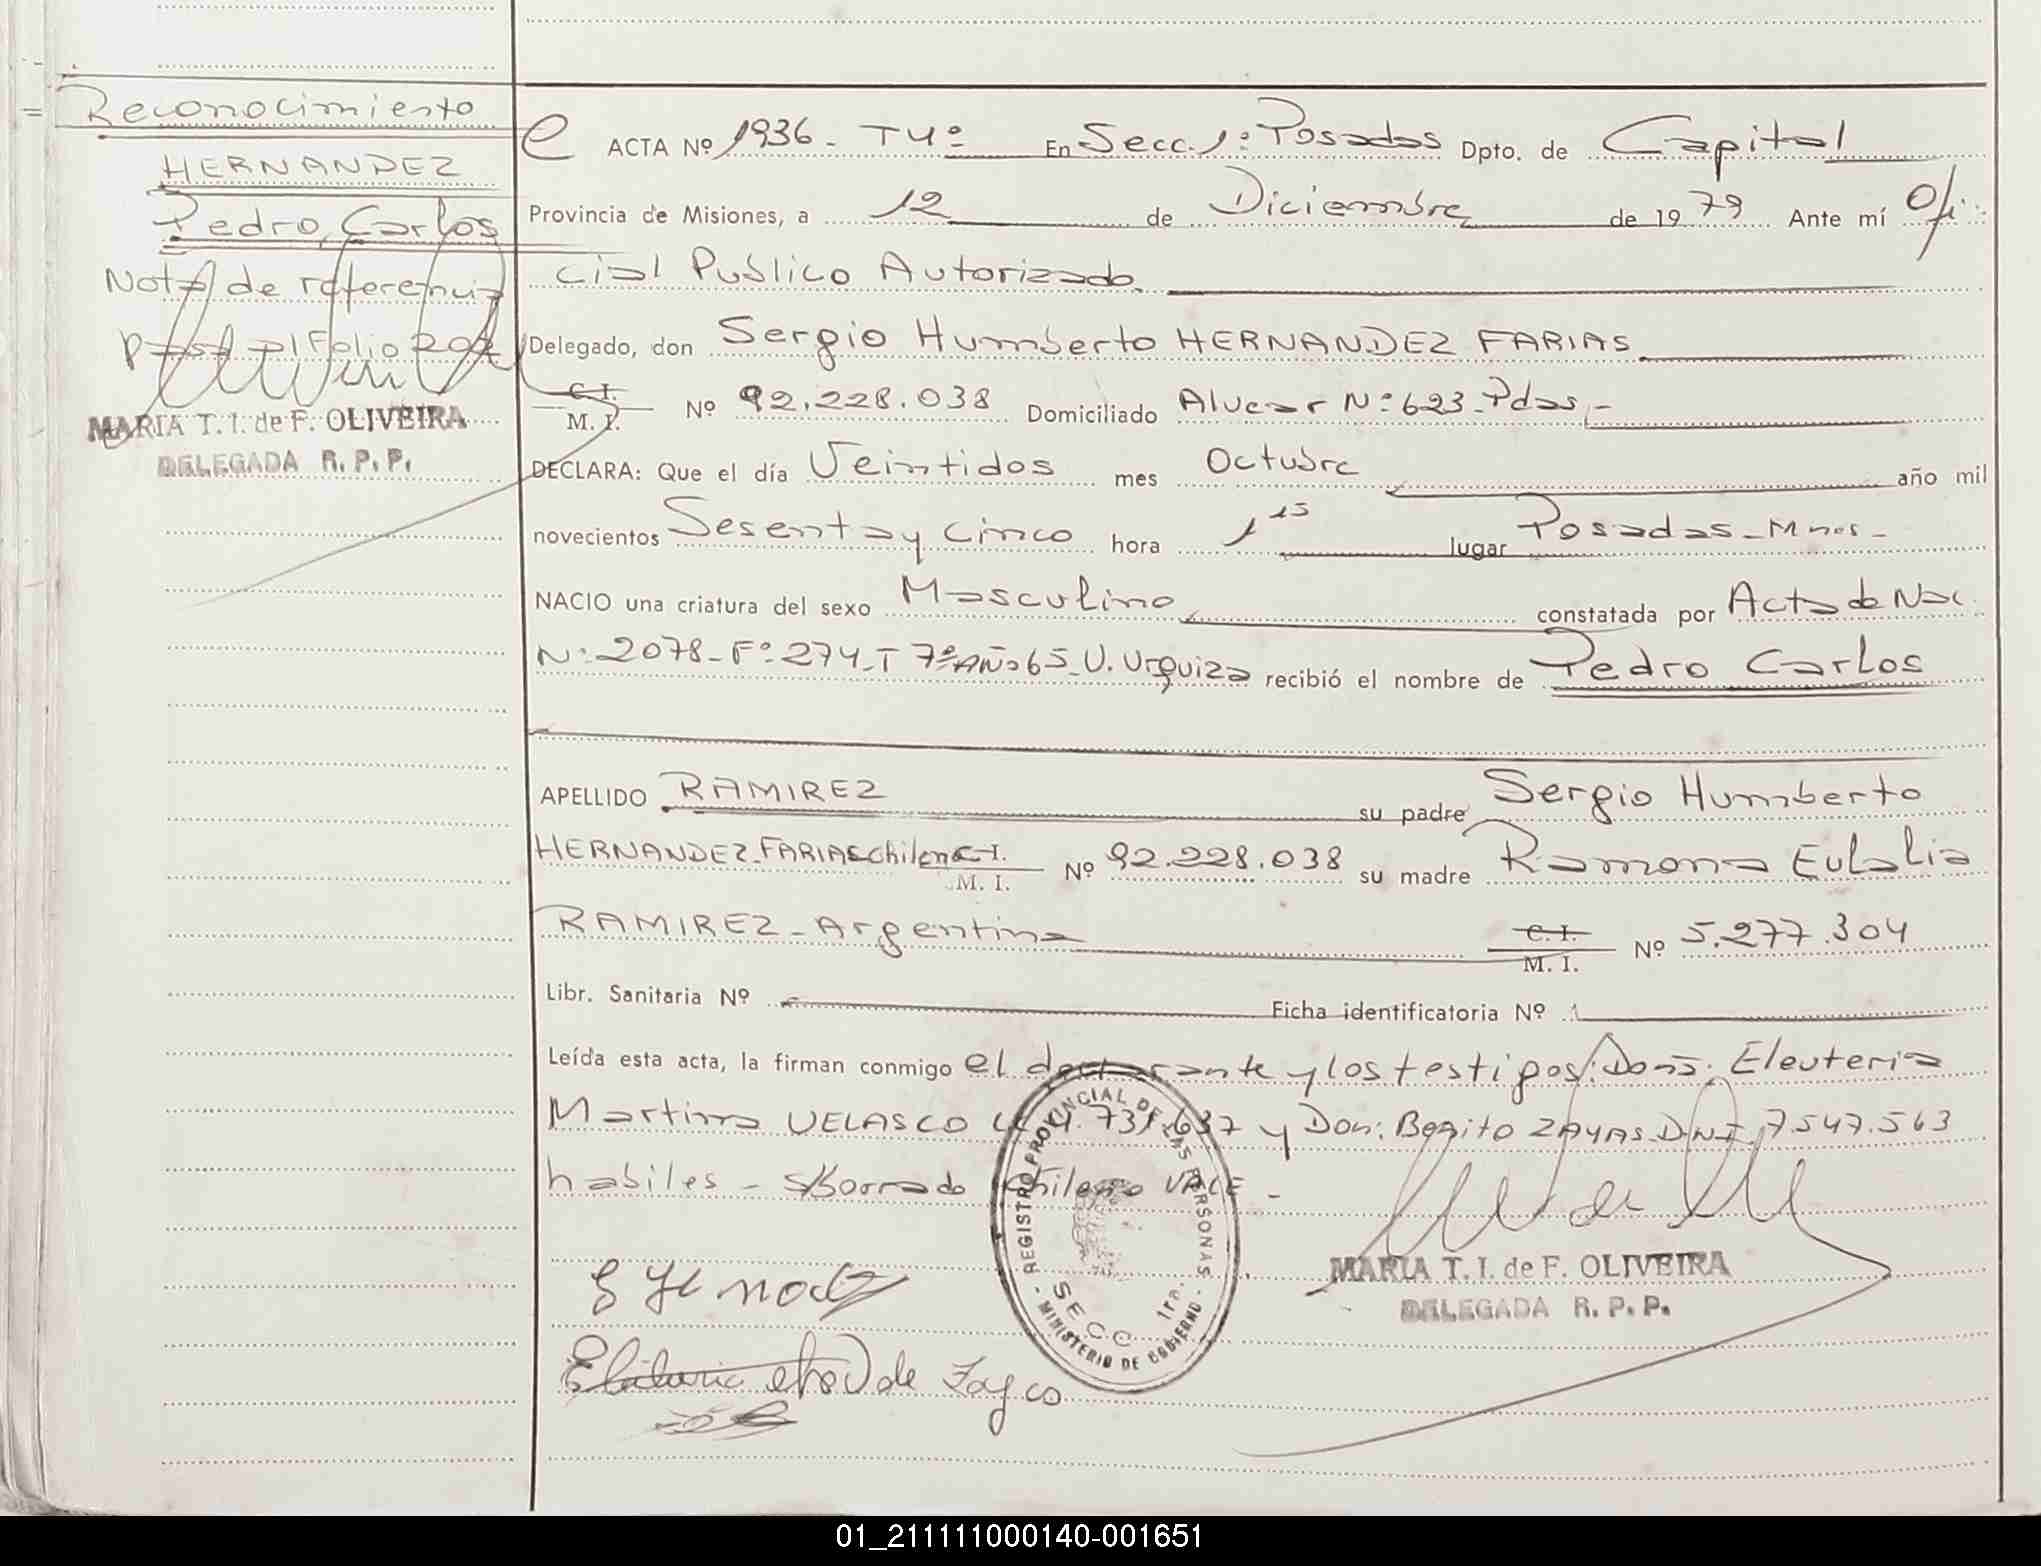 Reconocimiento
HERNANDEZ
Pedro Carlos
Nota de referencia
pasa al Folio 202
MARIA T. I. de F. OLIVEIRA
DELEGADA R. P. P.
e ACTA Nº 1936 - T4º En Secc. 1ª Posadas Dpto. de Capital
Provincia de Misiones, a 12 de Diciembre de 19 79 Ante mí Ofi-
cial Publico Autorizado
Delegado, don Sergio Humberto HERNANDEZ FARIAS
C. I.
M. I. Nº 92.228.038 Domiciliado Alvear Nº 623 - Pdas -
DECLARA: Que el día Veintidos mes Octubre año mil
novecientos Sesenta y Cinco hora 1 15 lugar Posadas - Mnes -
NACIO una criatura del sexo Masculino constatada por Acta de Nac.
Nº 2078 - Fº 274 - T 7º Año 65 - U. Urquiza recibió el nombre de Pedro Carlos
APELLIDO RAMIREZ su padre Sergio Humberto
HERNANDEZ FARIAS chileno C. I.
M. I. Nº 92.228.038 su madre Ramona Eulalia
RAMIREZ - Argentina C. I.
M. I. Nº 5.277.304
Libr. Sanitaria Nº Ficha identificatoria Nº
Leída esta acta, la firman conmigo el declarante y los testigos: Doña: Eleuteria
Martina VELASCO 4.731.637 y Don: Benito ZAYAS D.N.I. 7.547.563
habiles - s/Borrado chileno VALE -
REGISTRO PROVINCIAL DE LAS PERSONAS
SECC. 1ra.
- MINISTERIO DE GOBIERNO -
MARIA T. I. de F. OLIVEIRA
DELEGADA R. P. P.
01_211111000140-001651